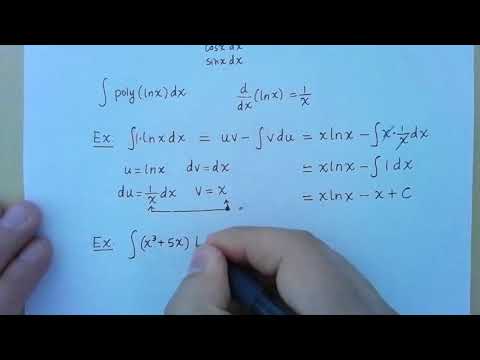 cosx dx
sinx dx
∫ poly(lnx)dx d/dx (lnx) = 1/x
Ex: ∫1·lnx dx = uv - ∫v du = xlnx - ∫x·1/x dx
u = lnx dv = dx = xlnx - ∫1 dx
du = 1/x dx v = x = xlnx - x + C
Ex: ∫(x³+5x) l